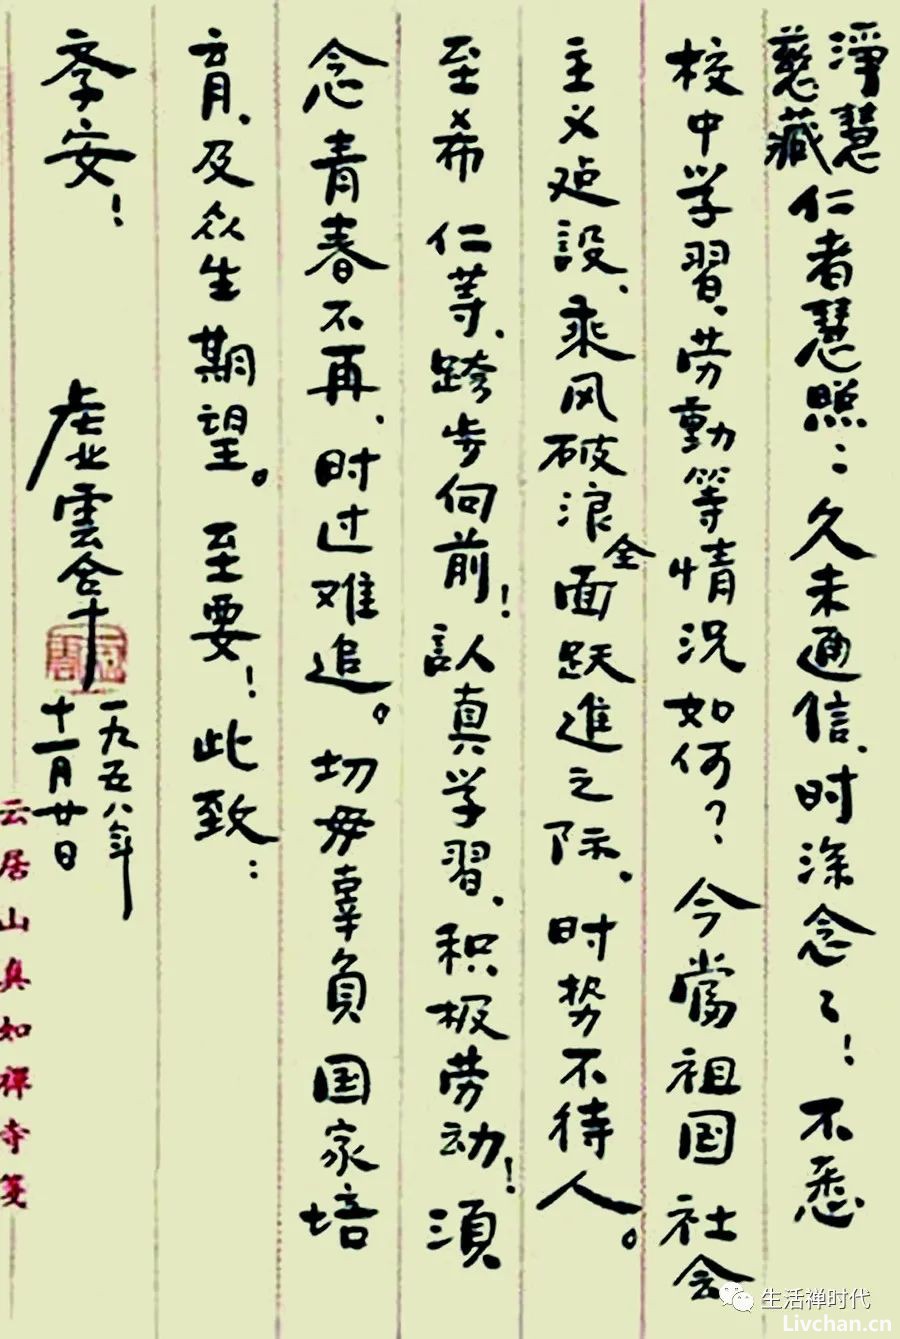 淨慧
慈藏 仁者慧照：久未通信、时深念々！不悉
校中学習、劳動等情况如何？今當祖国社会
主义建設、乘风破浪全面跃進之际。时势不待人。
至希 仁等、跨步向前！認真学習、积极劳动！須
念青春不再、时过难追。切毋辜負国家培
育、及众生期望。至要！此致：
斋安！
虚雲合十
一九五八年
十一月廿日
云居山真如禅寺箋
生活禅时代
Livchan.cn